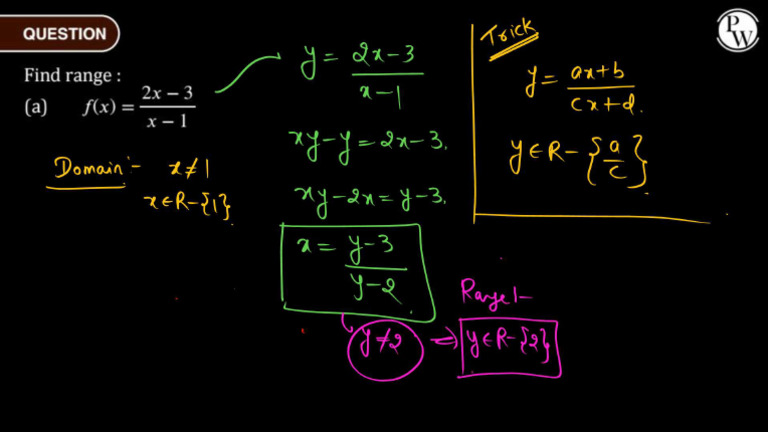 QUESTION
Find range :
(a) f(x) = \frac{2x - 3}{x - 1}
Domain :- x ≠ 1
x ∈ R - {1}
y = \frac{2x-3}{x-1}
xy - y = 2x - 3.
xy - 2x = y - 3.
x = \frac{y-3}{y-2}
y ≠ 2 ⇒ y ∈ R - {2}
Range :-
Trick
y = \frac{ax+b}{cx+d}.
y ∈ R - {\frac{a}{c}}
PW